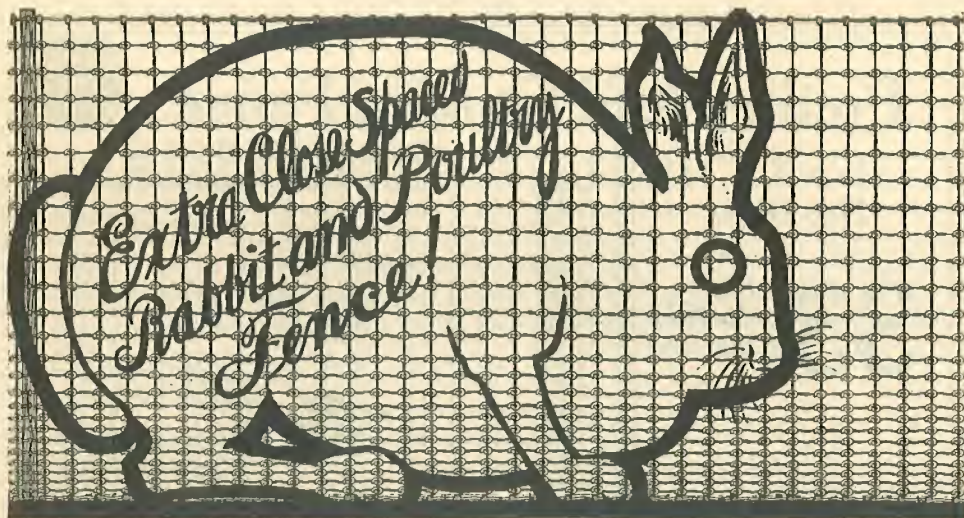 Extra Close Spaced
Rabbit and Poultry
Fence!